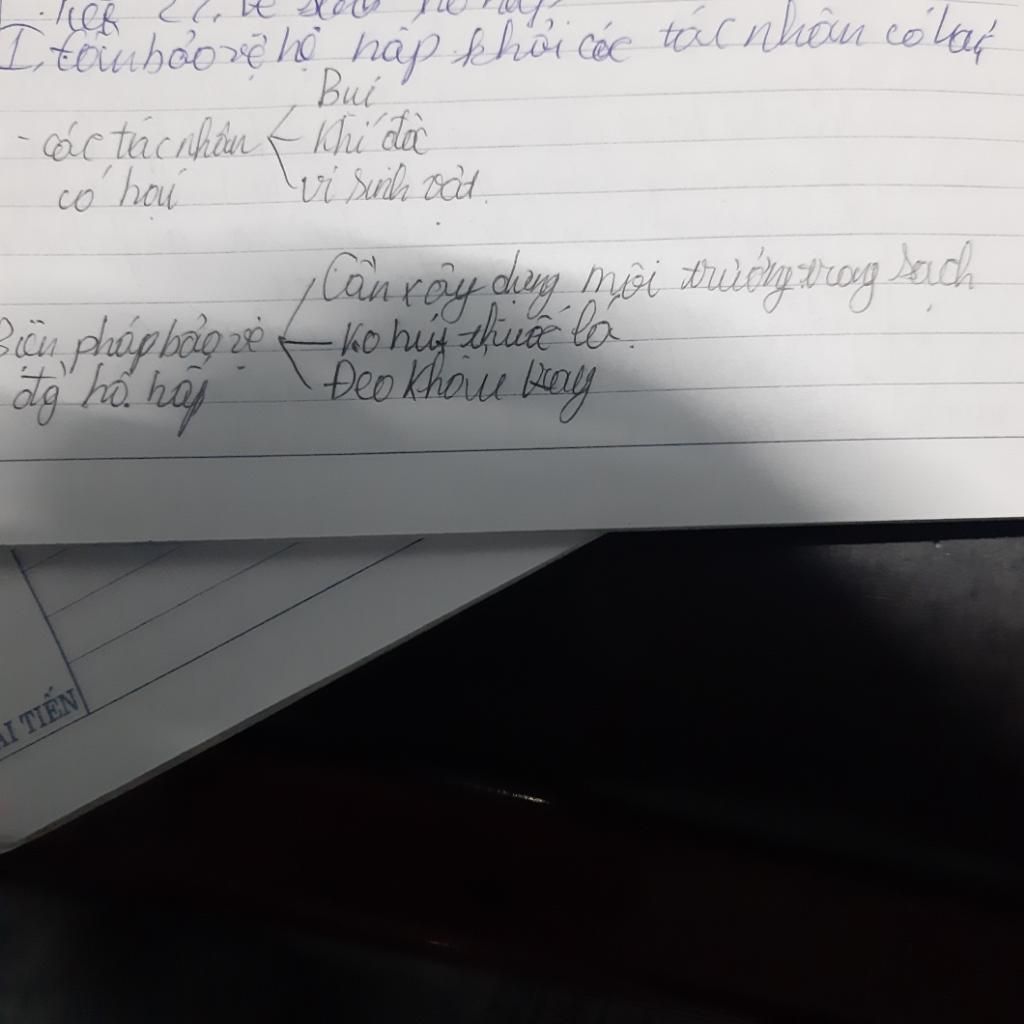 I, bảo vệ hô hấp khỏi các tác nhân có hại
Bụi
- các tác nhân Khí độc
có hại vi sinh vật.
Cần xây dựng môi trường trong sạch
Biện pháp bảo vệ Ko hút thuốc lá.
đg hô hấp Đeo khẩu trang
AI TIẾN